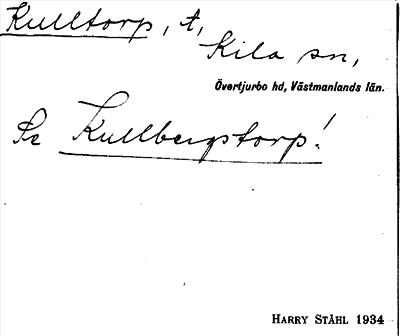 Kulltorp, t,
Kila sn,
Övertjurbo hd, Västmanlands län.
Se Kullbergstorp!
HARRY STÅHL 1934